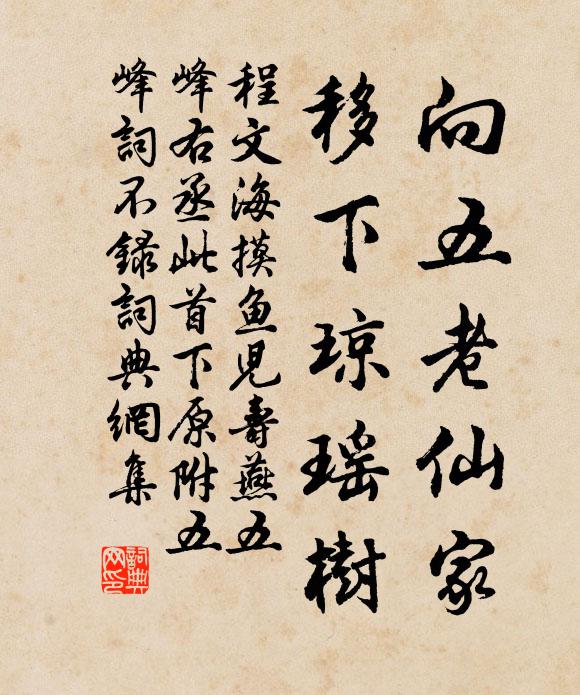 向五老仙家
移下琼瑶樹
程文海摸鱼児壽燕五
峰右丞此首下原附五
峰詞不録詞典網集
詞典网印